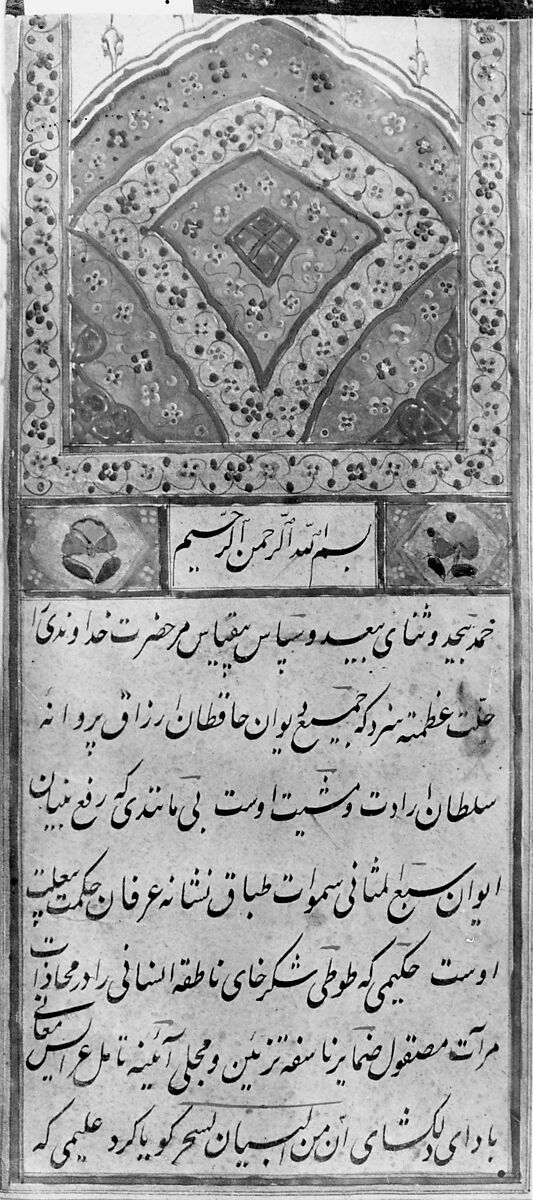 بسم الله الرحمن الرحیم
حمد بیحد و ثنای بیعد و سپاس بیقیاس مر حضرت خداوندی را
جلّت عظمته سزد که جمیع دیوان حافظان ارزاق پروانه
سلطان ارادت و مشیت اوست بی مانندی که رفع بنیان
ایوان سبع المثانی سموات طباق نشانه عرفان حکمت
اوست حکیمی که طوطی شکرخای ناطقه انسانی را در محاذات
مرآت مصقول ضمایر تزئین و مجلی آئینه تامل عرایس معانی
بادای دلکشای انّ من البیان لسحر کویا کرد علیمی که